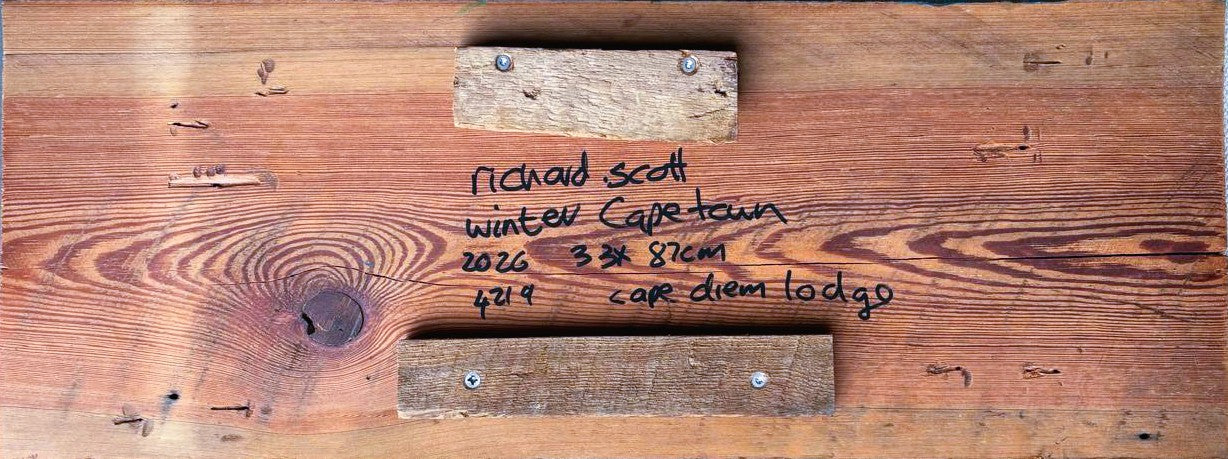 richard scott
winter Cape town
2026 33x 87cm
4219 cape diem lodge